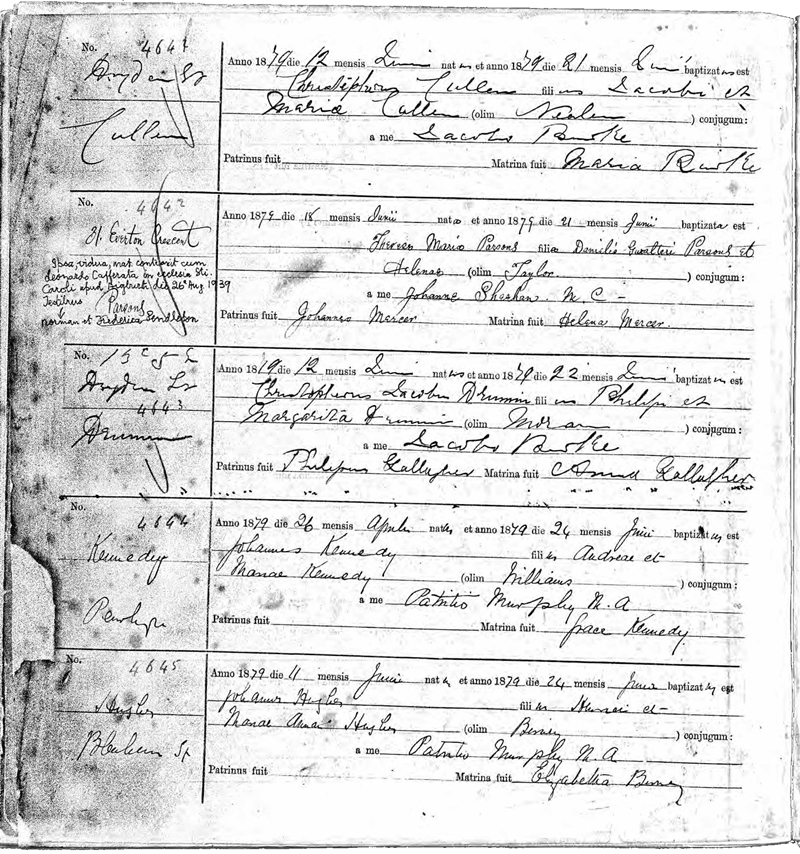 No. 4641
Dryden St
Cullen
Anno 1879 die 12 mensis Junii natus et anno 1879 die 21 mensis Junii baptizatus est
Christophorus Cullen filius Jacobi et
Maria Cullen (olim ) conjugum:
a me Jacobo Burke
Patrinus fuit Matrina fuit Maria Burke
No. 4642
31 Everton Crescent
Ipsa, vidua, mat. contraxit cum
Leonardo Cafferata in ecclesia Sti.
Caroli apud Aigburth die 26 Aug 1939
Testibus Parsons
Norman et Frederica Pendleton
Anno 1879 die 18 mensis Junii nata et anno 1879 die 21 mensis Junii baptizata est
Theresa Maria Parsons filia Danielis Gualteri Parsons et
Helenae (olim Taylor ) conjugum:
a me Johanne Sheehan. M.C-
Patrinus fuit Johannes Mercer Matrina fuit Helena Mercer.
No.
Dryden St
4643
Drumm
Anno 1879 die 12 mensis Junii natus et anno 1879 die 22 mensis Junii baptizatus est
Christophorus Jacobus Drumm filius Philipi et
Margarita Drumm (olim Moran ) conjugum:
a me Jacobo Burke
Patrinus fuit Philipus Gallagher Matrina fuit Gallagher
No. 4644
Kennedy
Penrhyn
Anno 1879 die 26 mensis Aprilis natus et anno 1879 die 24 mensis Junii baptizatus est
Johannes Kennedy filius Andreae et
Mariae Kennedy (olim Williams ) conjugum:
a me Patritio Murphy M.A
Patrinus fuit Matrina fuit Grace Kennedy.
No. 4645
Hughes
Blenheim St
Anno 1879 die 11 mensis Junii natus et anno 1879 die 24 mensis Junii baptizatus est
Johannes Hughes filius et
Mariae Annae Hughes (olim ) conjugum:
a me Patritio Murphy M.A
Patrinus fuit Matrina fuit Elizabetha